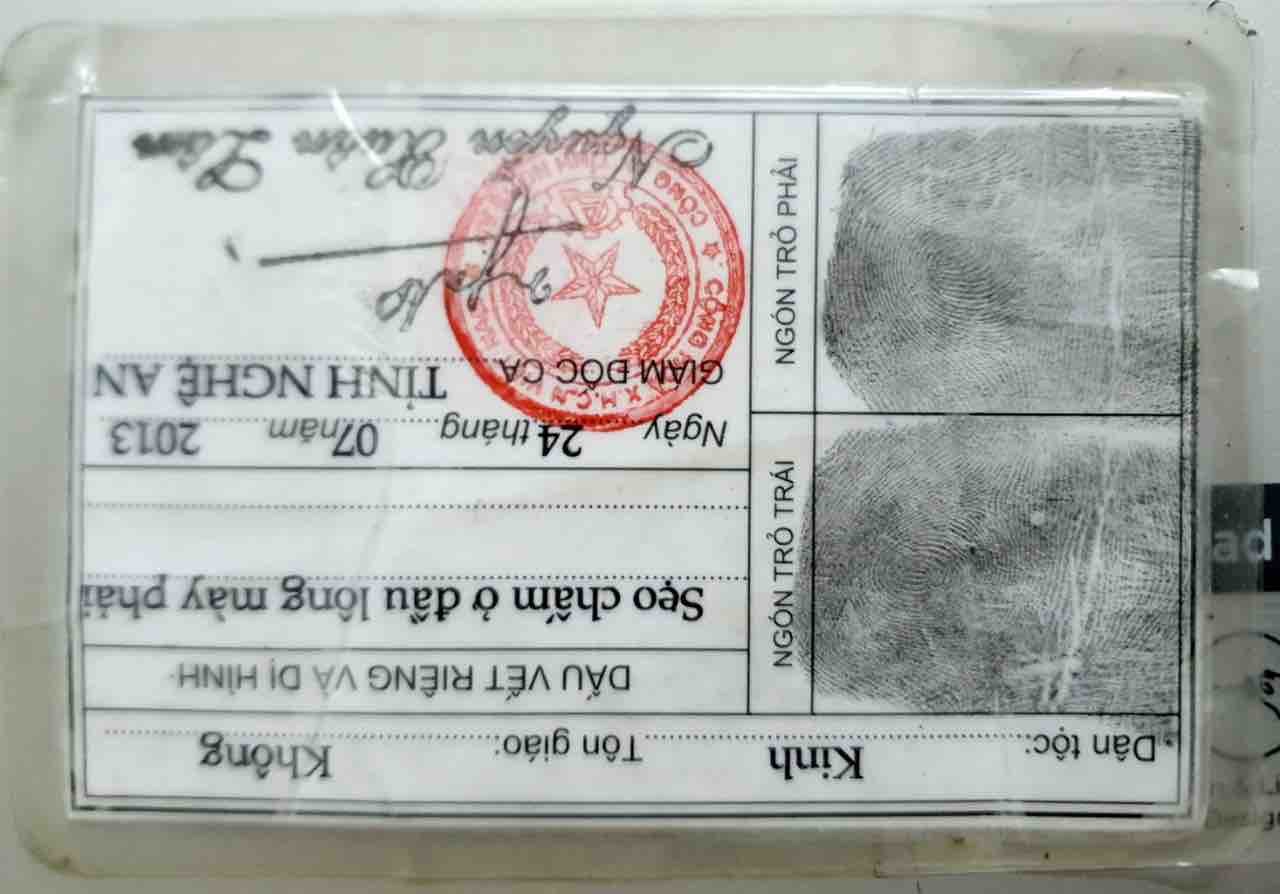 Dân tộc: Kinh Tôn giáo: Không
NGÓN TRỎ TRÁI
DẤU VẾT RIÊNG VÀ DỊ HÌNH
Sẹo chấm ở đầu lông mày phải
NGÓN TRỎ PHẢI
Ngày 24 tháng 07 năm 2013
GIÁM ĐỐC CA TỈNH NGHỆ AN
Nguyễn Xuân Lâm
ad